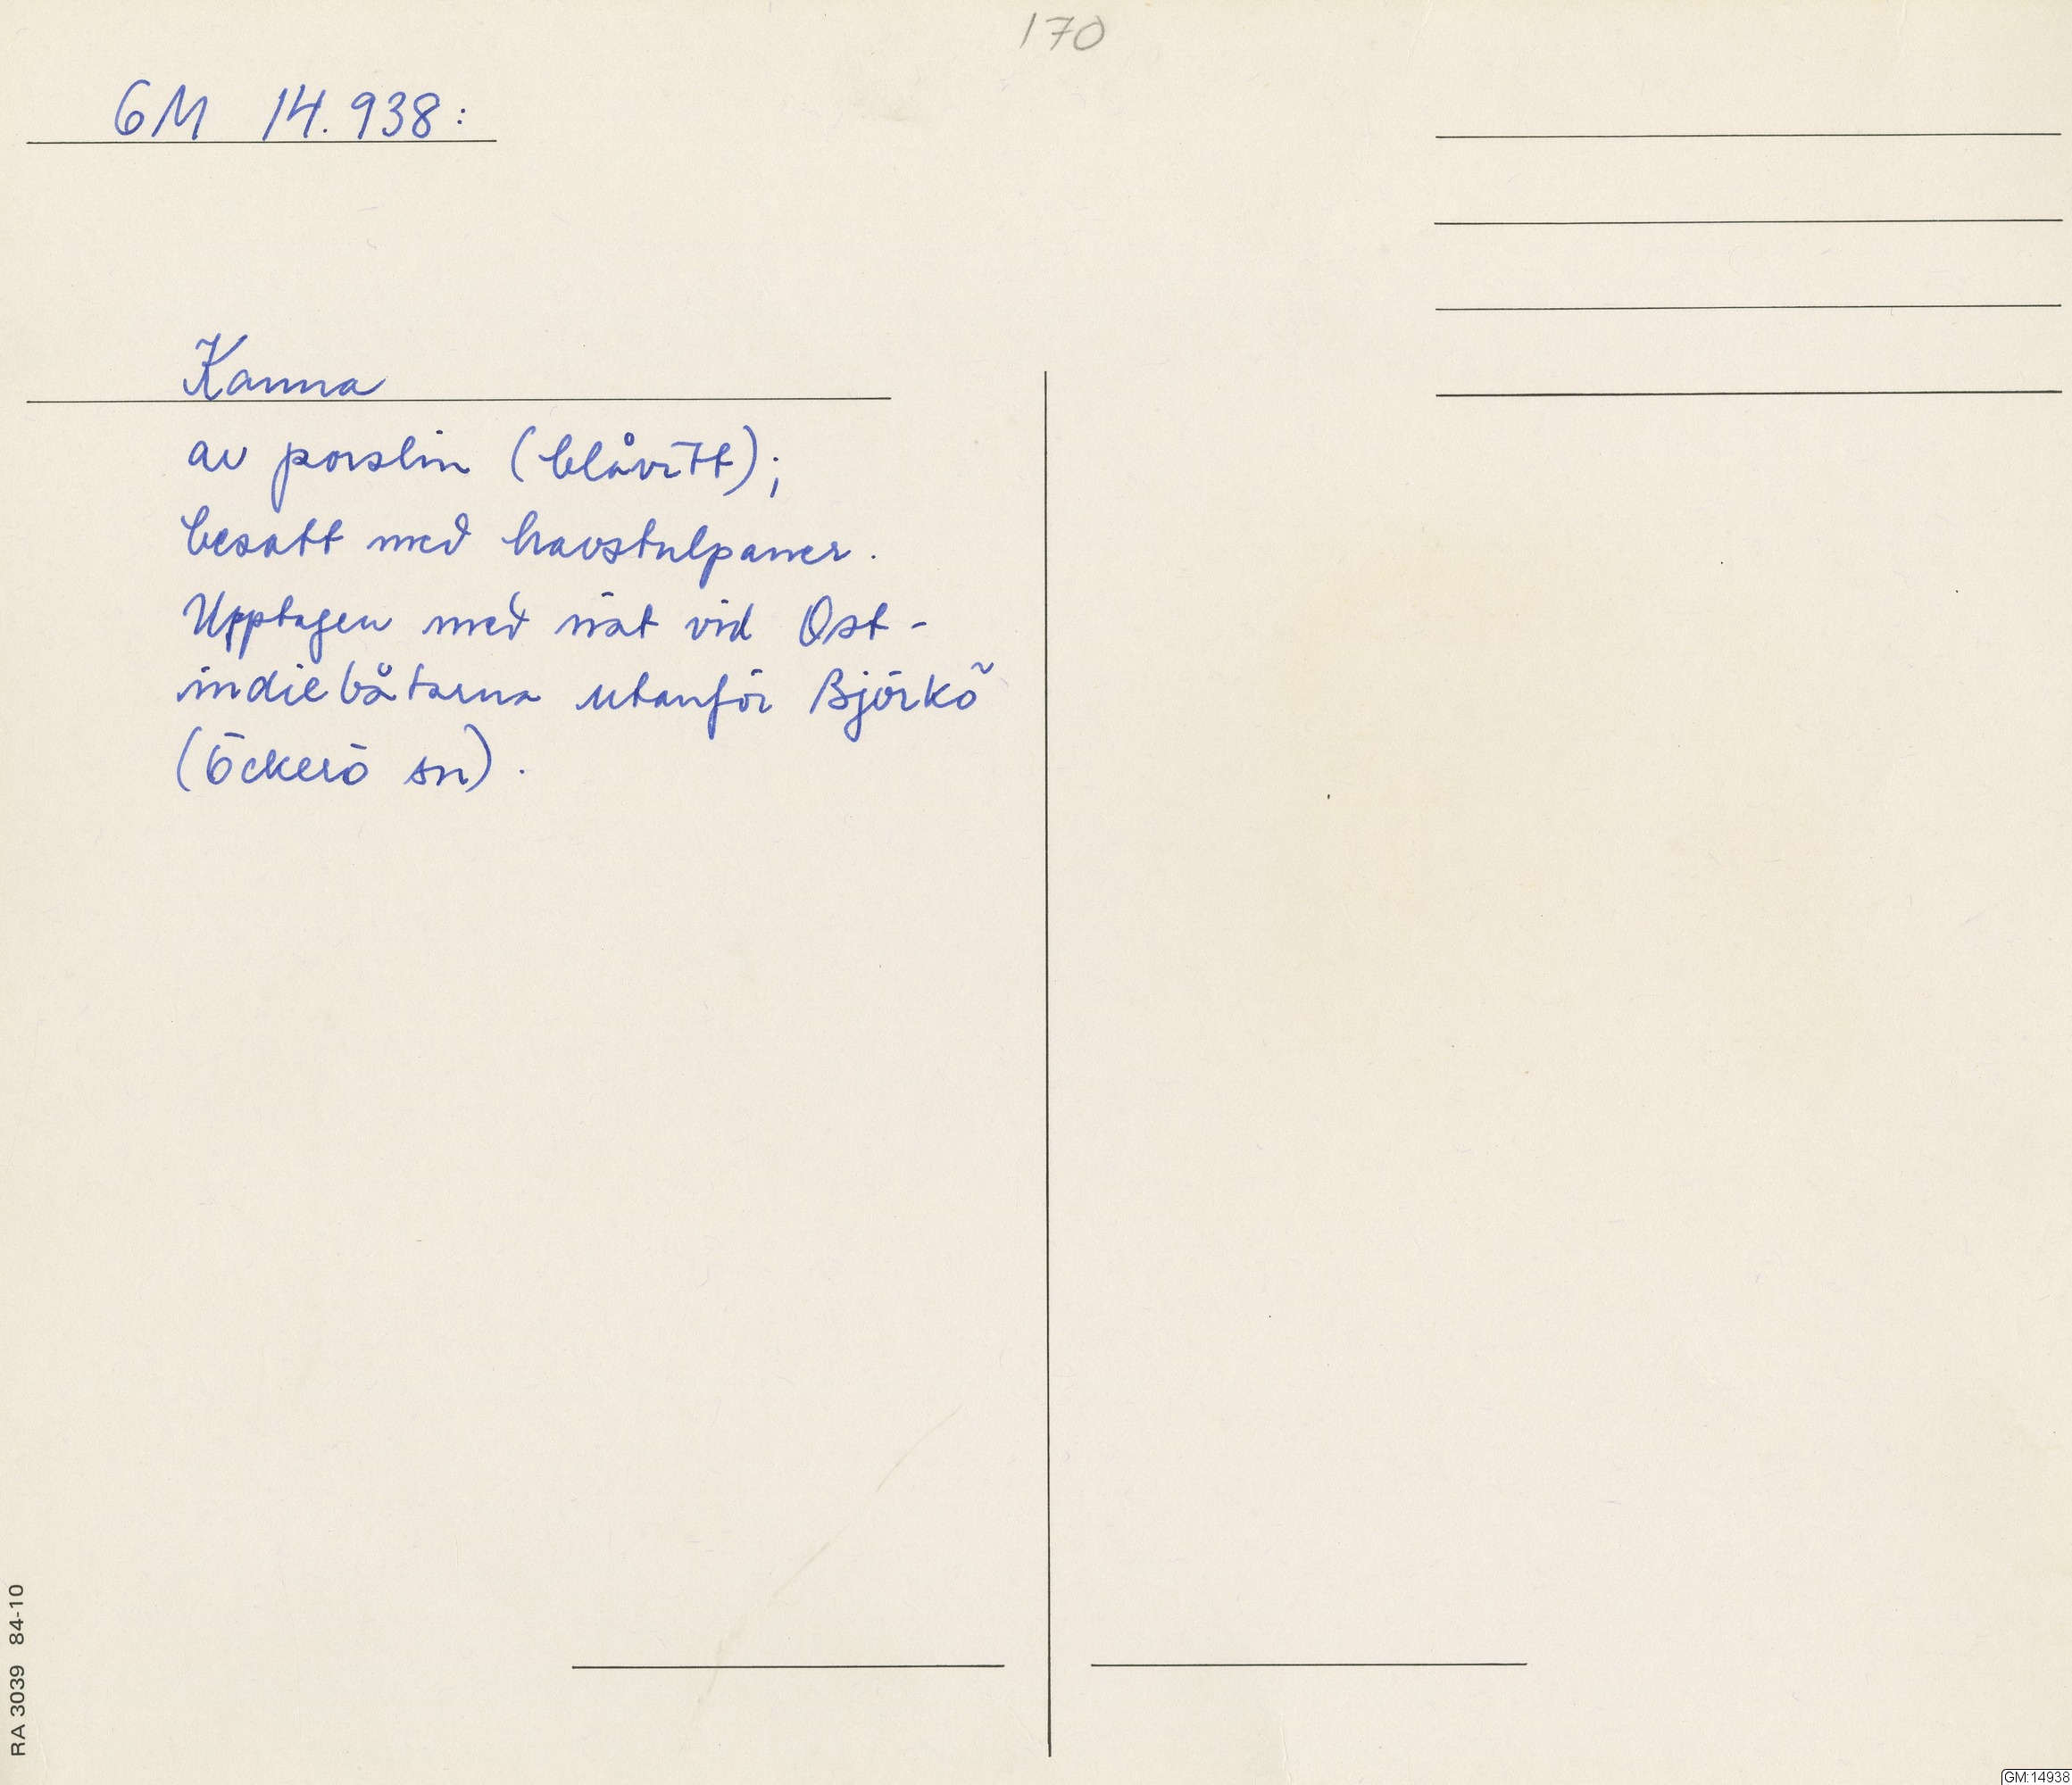 170
GM 14.938:
Kanna
av porslin (blåvitt);
besatt med havstulpaner.
Upptagen med nät vid Ost-
indiebåtarna utanför Björkö
(Öckerö sn).
RA 3039 84-10
GM:14938